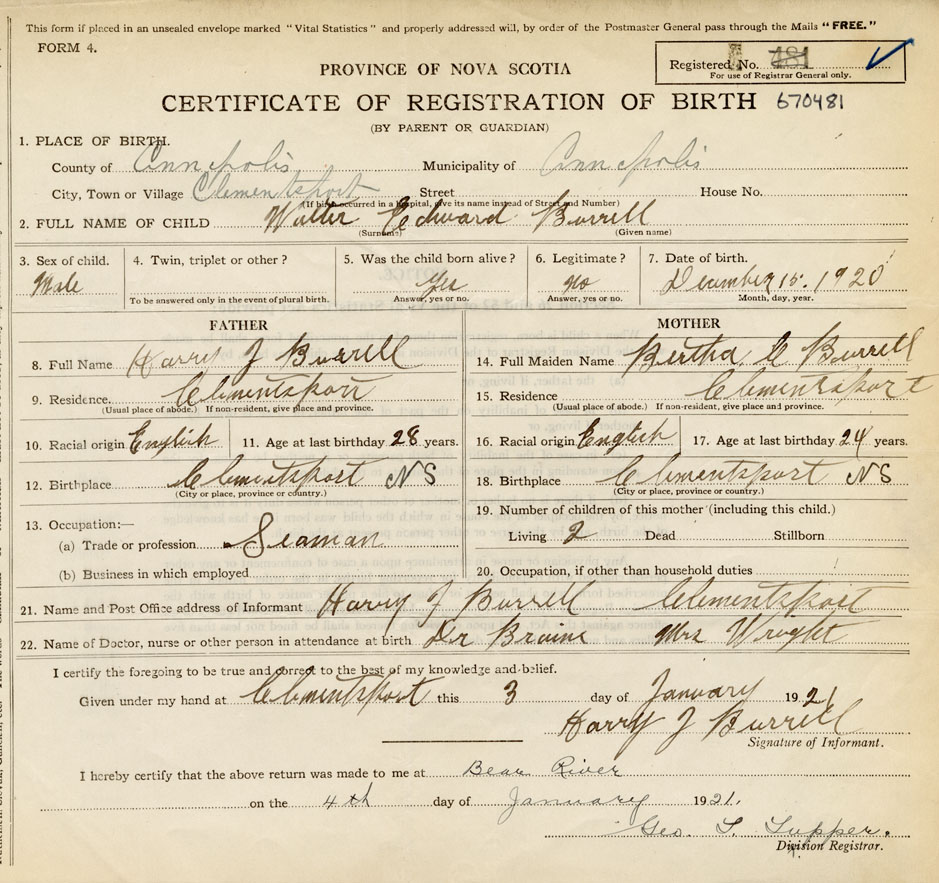 This form if placed in an unsealed envelope marked "Vital Statistics" and properly addressed will, by order of the Postmaster General pass through the Mails "FREE."
FORM 4.
Registered No. 481
For use of Registrar General only.
PROVINCE OF NOVA SCOTIA
CERTIFICATE OF REGISTRATION OF BIRTH 670481
(BY PARENT OR GUARDIAN)
1. PLACE OF BIRTH.
County of Annapolis Municipality of Annapolis
City, Town or Village Clementsport Street House No.
(If birth occurred in a hospital, give its name instead of Street and Number)
2. FULL NAME OF CHILD Walter Edward Burrell
(Surname) (Given name)
3. Sex of child. 4. Twin, triplet or other ? 5. Was the child born alive ? 6. Legitimate ? 7. Date of birth.
Male Yes no December 15. 1920
To be answered only in the event of plural birth. Answer, yes or no. Answer, yes or no. Month, day, year.
FATHER MOTHER
8. Full Name Harry J Burrell 14. Full Maiden Name Bertha C Burrell
9. Residence. Clementsport 15. Residence Clementsport
(Usual place of abode.) If non-resident, give place and province. (Usual place of abode.) If non-resident, give place and province.
10. Racial origin English 11. Age at last birthday 28 years. 16. Racial origin English 17. Age at last birthday 24 years.
12. Birthplace Clementsport NS 18. Birthplace Clementsport NS
(City or place, province or country.) (City or place, province or country.)
13. Occupation:— 19. Number of children of this mother (including this child.)
(a) Trade or profession Seaman Living 2 Dead Stillborn
(b) Business in which employed 20. Occupation, if other than household duties
21. Name and Post Office address of Informant Harry J Burrell Clementsport
22. Name of Doctor, nurse or other person in attendance at birth Dr Braine Mrs Wright
I certify the foregoing to be true and correct to the best of my knowledge and belief.
Given under my hand at Clementsport this 3 day of January 1921
Harry J Burrell
Signature of Informant.
I hereby certify that the above return was made to me at Bear River
on the 4th day of January 1921.
Geo. T. Tupper.
Division Registrar.